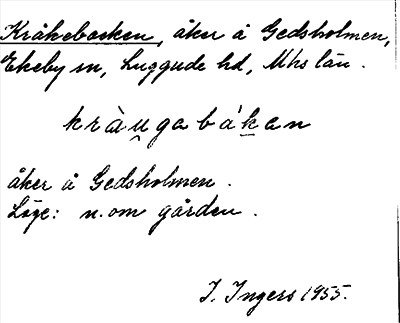 Kråkebacken, åker å Gedsholmen,
Ekeby sn, Luggude hd, Mhs län.
kràu̬gabák̬an
åker å Gedsholmen.
Läge: n. om gården.
I. Ingers 1955.